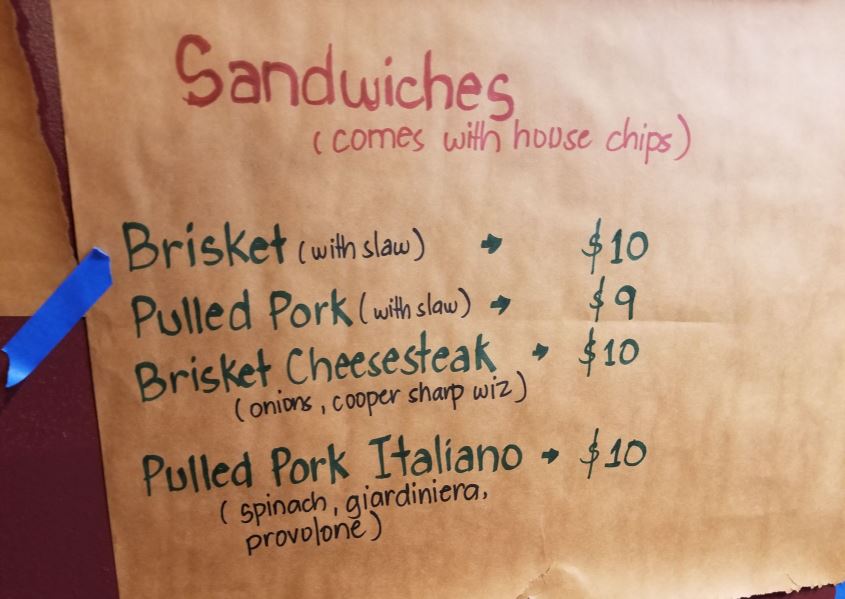 Sandwiches
(comes with house chips)
Brisket (with slaw) → $10
Pulled Pork (with slaw) → $9
Brisket Cheesesteak → $10
(onions, cooper sharp wiz)
Pulled Pork Italiano → $10
(spinach, giardiniera,
provolone)